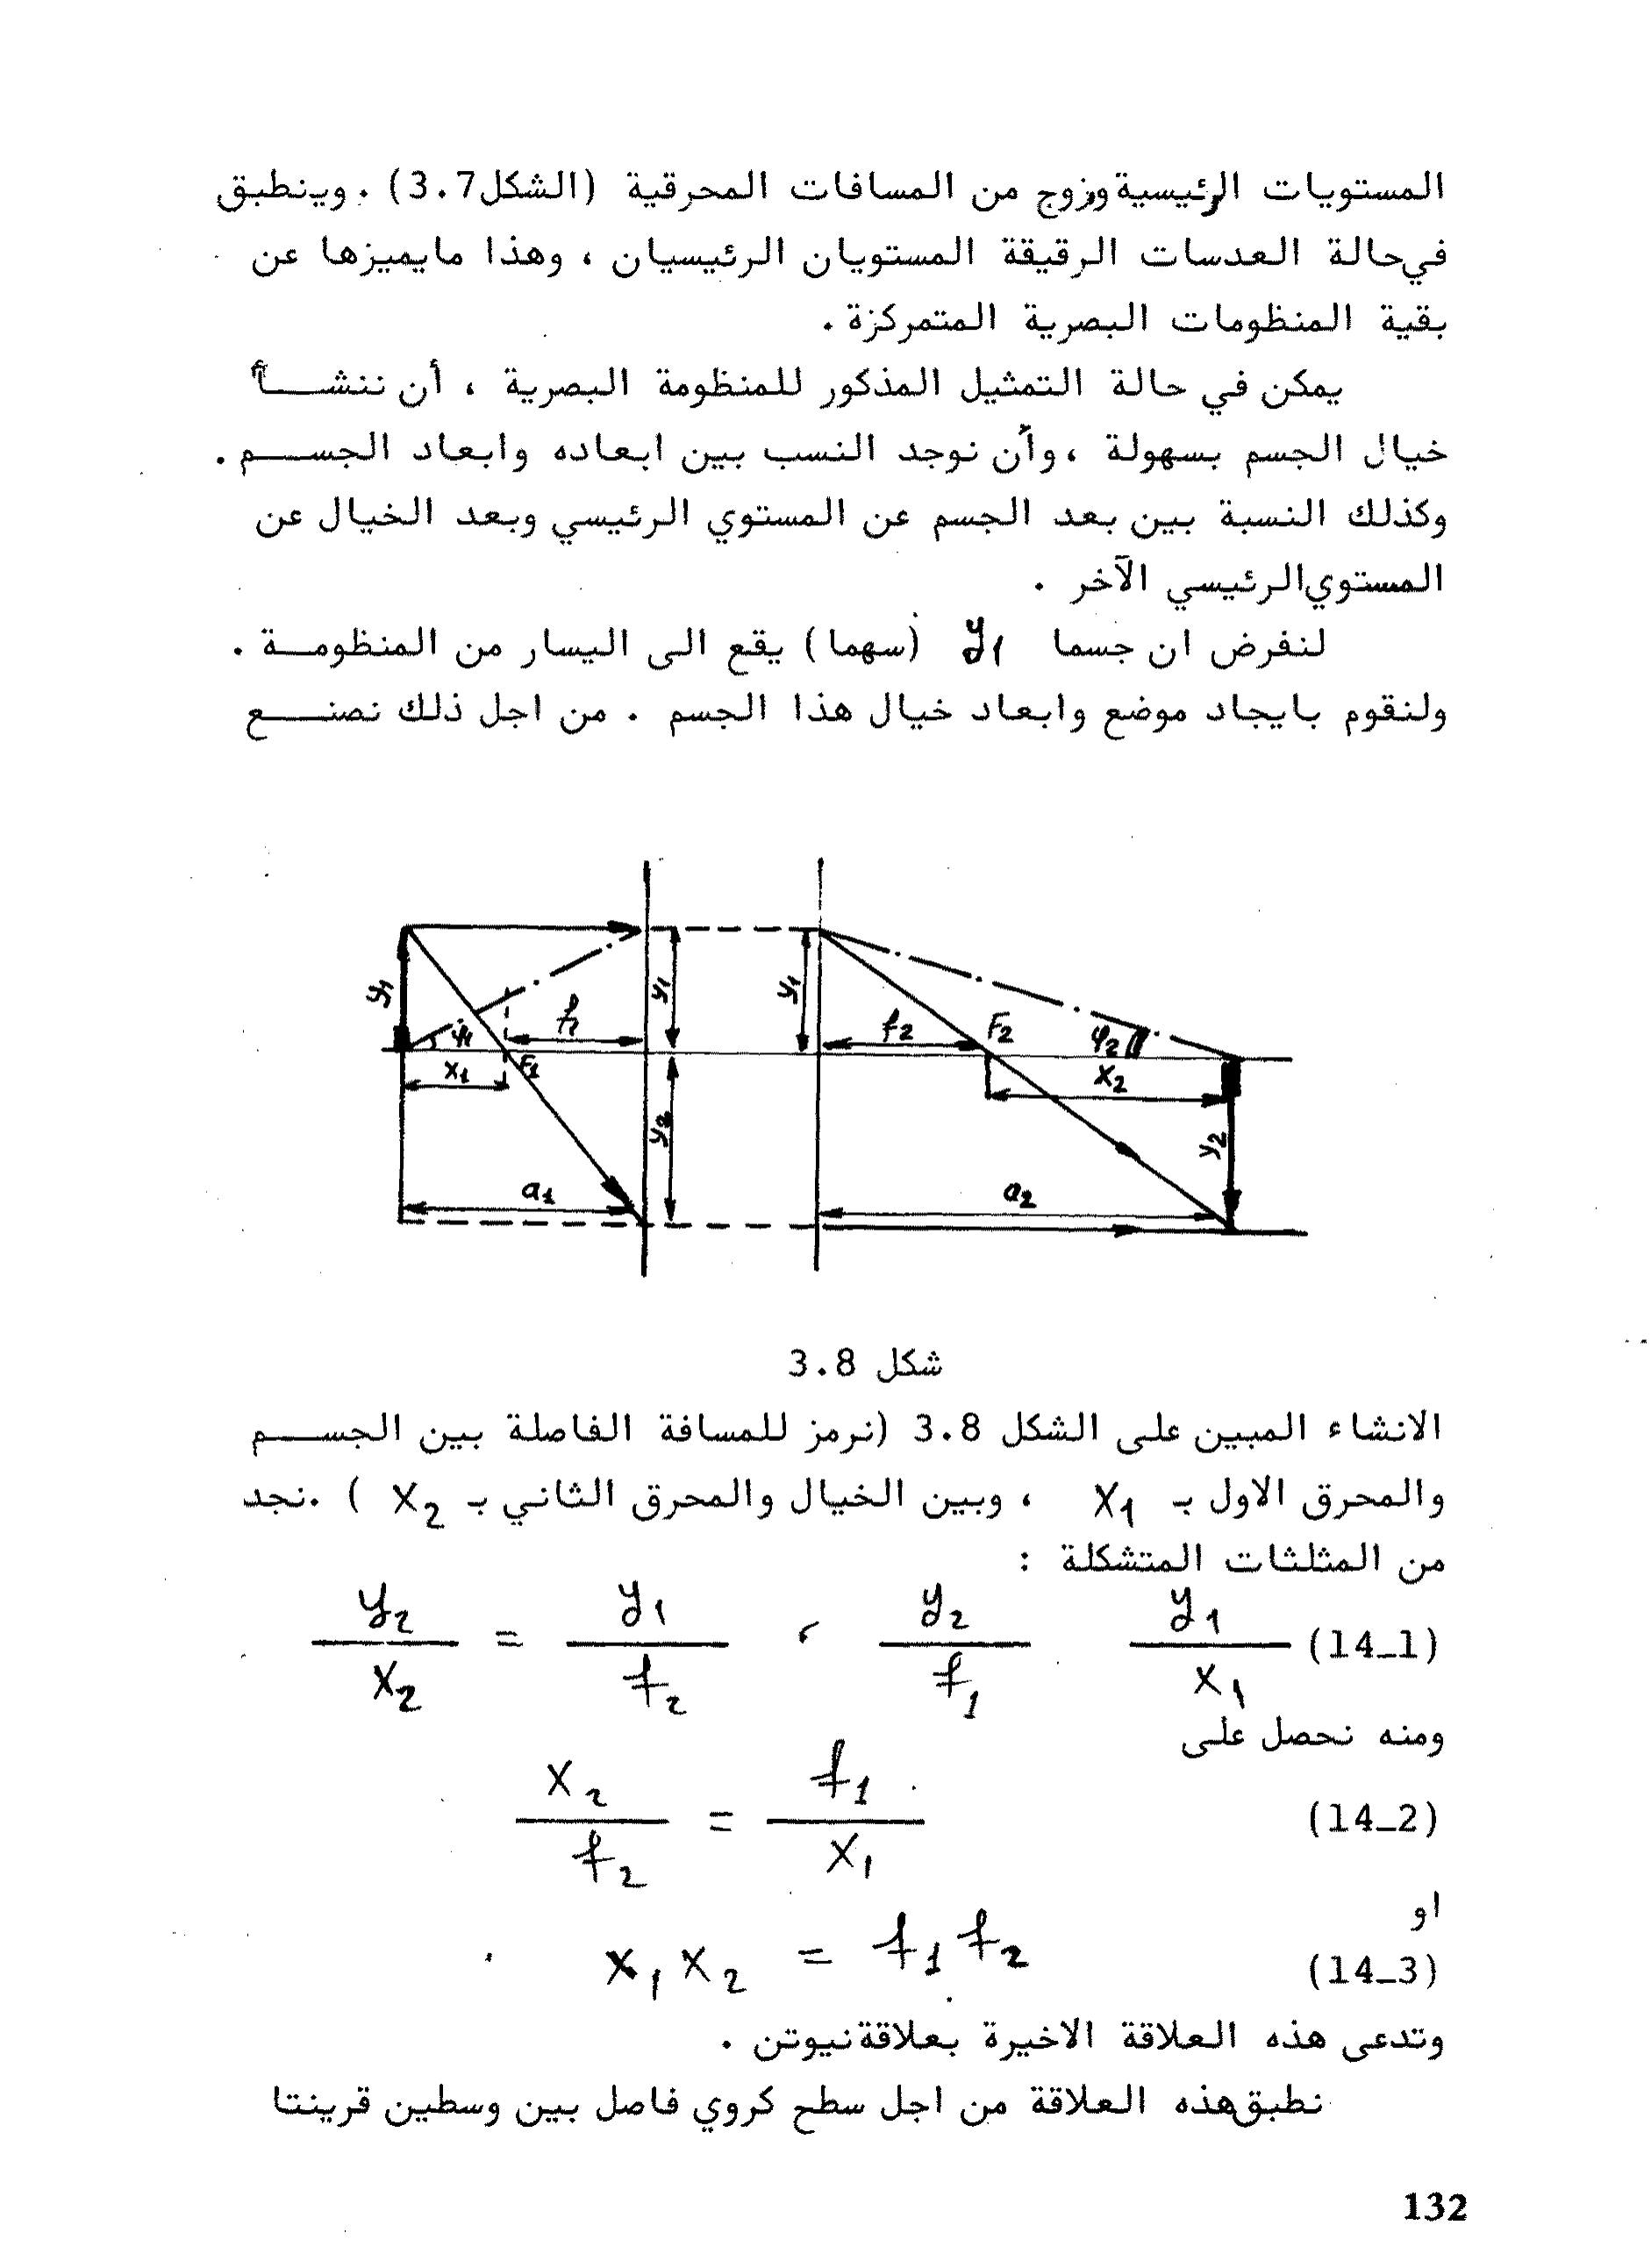 المستويات الرئيسية وزوج من المسافات المحرقية (الشكل 3.7) . وينطبق
في حالة العدسات الرقيقة المستويان الرئيسيان ، وهذا مايميزها عن
بقية المنظومات البصرية المتمركزة .
يمكن في حالة التمثيل المذكور للمنظومة البصرية ، أن ننشأ
خيال الجسم بسهولة ، وأن نوجد النسب بين ابعاده وابعاد الجسم .
وكذلك النسبة بين بعد الجسم عن المستوي الرئيسي وبعد الخيال عن
المستوي الرئيسي الآخر .
لنفرض ان جسما y1 (سهما) يقع الى اليسار من المنظومة .
ولنقوم بايجاد موضع وابعاد خيال هذا الجسم . من اجل ذلك نصنع
y1 y1 y1
φ1 f1 f2 F2 φ2
x1 F1 x2
y2 y2
a1 a2
شكل 3.8
الانشاء المبين على الشكل 3.8 (نرمز للمسافة الفاصلة بين الجسم
والمحرق الاول بـ x1 ، وبين الخيال والمحرق الثاني بـ x2 ) .نجد
من المثلثات المتشكلة :
y2/x2 = y1/f2 ، y2/f1 y1/x1 (14_1)
ومنه نحصل على
x2/f2 = f1/x1 (14_2)
او
x1 x2 = f1 f2 (14_3)
وتدعى هذه العلاقة الاخيرة بعلاقة نيوتن .
نطبق هذه العلاقة من اجل سطح كروي فاصل بين وسطين قرينتا
132